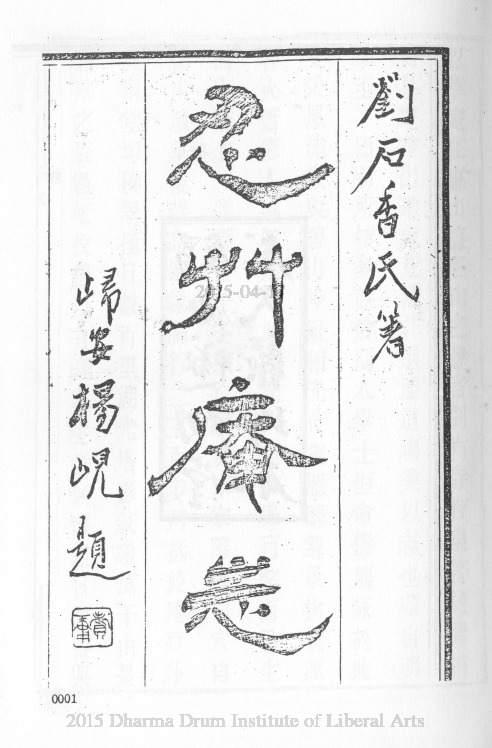 劉石香氏箸
忍艸庵志
歸安楊峴題
0001
2015 Dharma Drum Institute of Liberal Arts